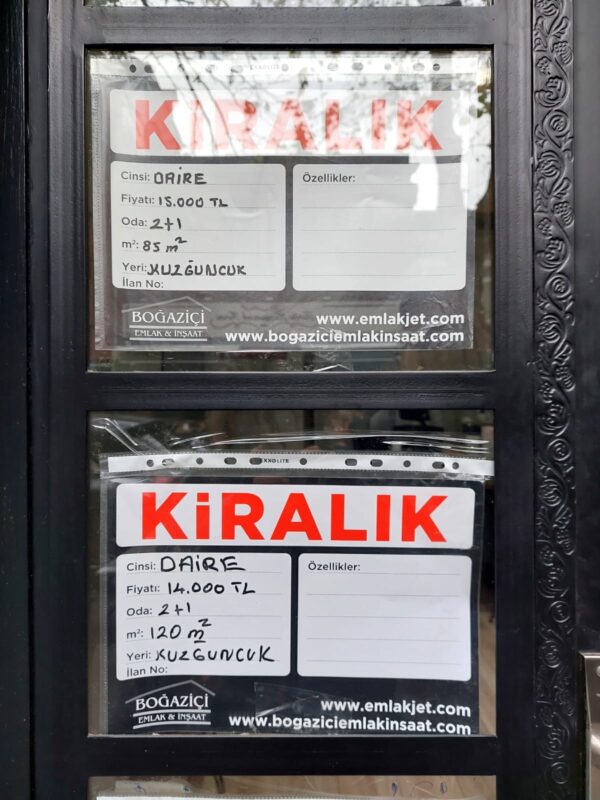 KiRALIK
Cinsi: DAİRE
Fiyatı: 15.000 TL
Oda: 2+1
m²: 85 m²
Yeri: KUZGUNCUK
İlan No:
Özellikler:
BOĞAZİÇİ
EMLAK & İNŞAAT
www.emlakjet.com
www.bogaziciemlakinsaat.com
KiRALIK
Cinsi: DAİRE
Fiyatı: 14.000 TL
Oda: 2+1
m²: 120 m²
Yeri: KUZGUNCUK
İlan No:
Özellikler:
BOĞAZİÇİ
EMLAK & İNŞAAT
www.emlakjet.com
www.bogaziciemlakinsaat.com